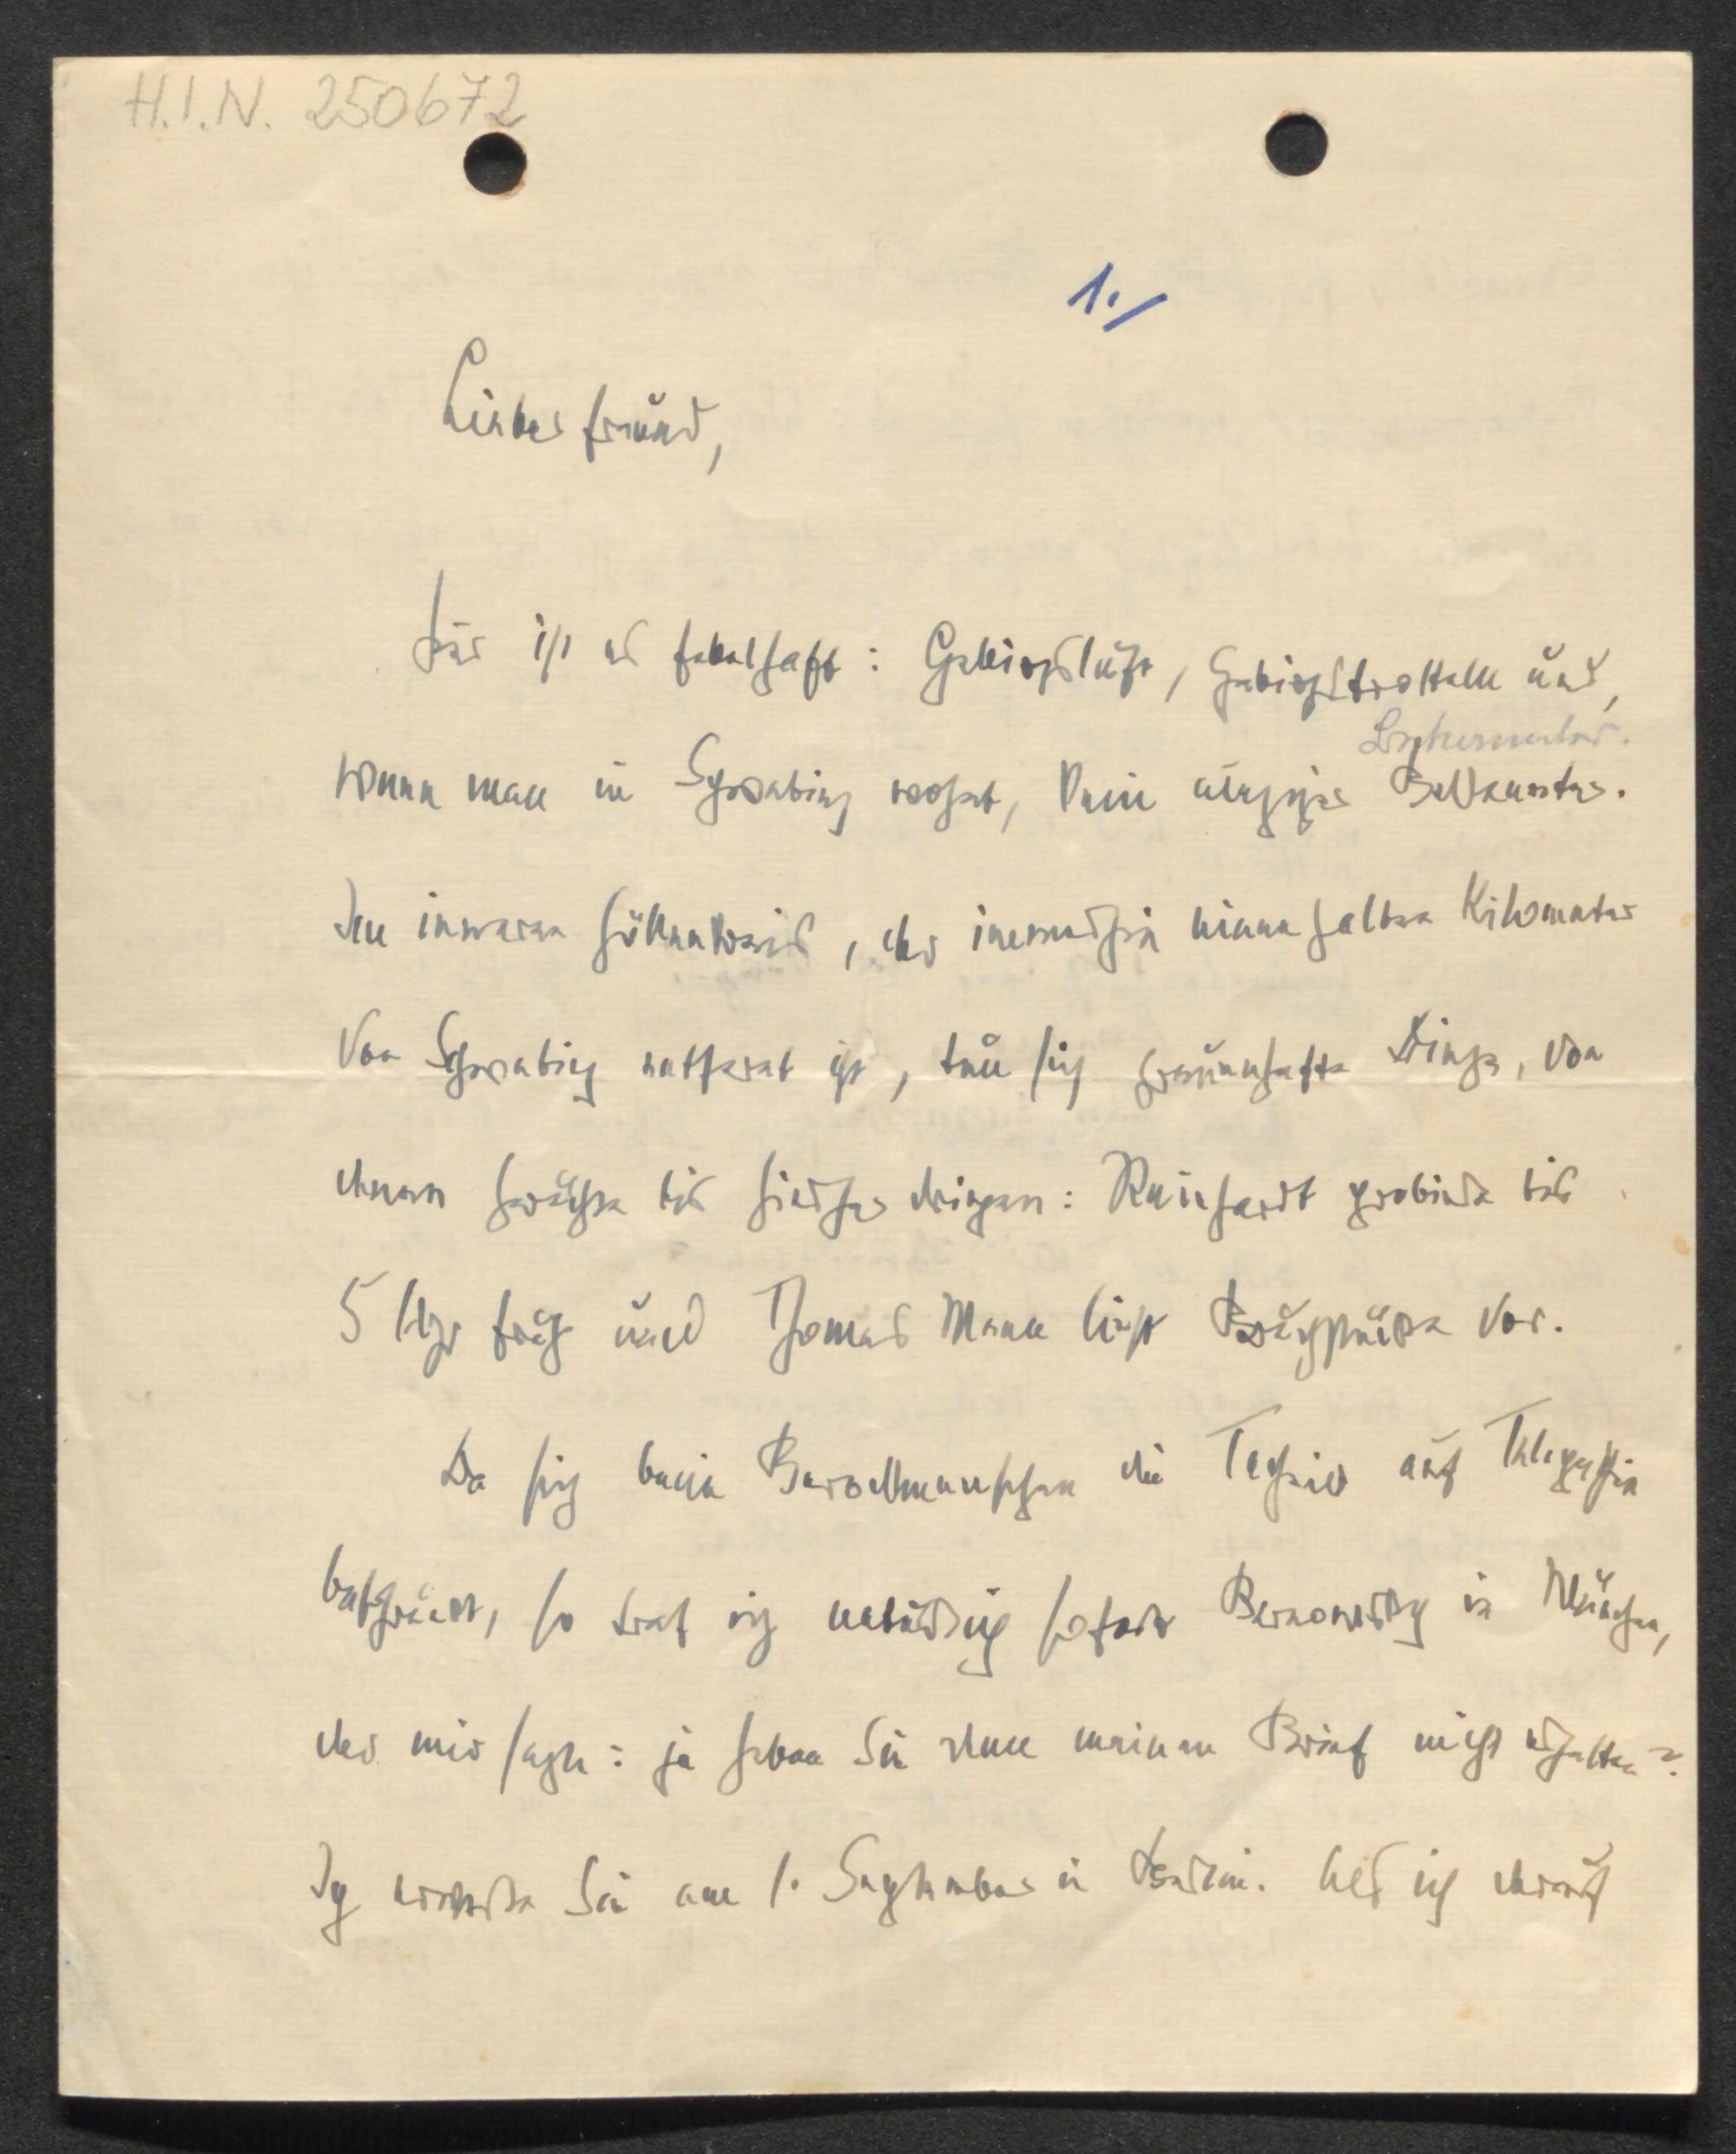 H.I.N. 250672
1./
Lieber Freund,
hier ist es fabelhaft: Gebirgsluft, Gebirgstrotteln und,
wenn man in Schwabing wohnt, kein einziger
Im inneren Höllenkreis, der immerhin einen halben Kilometer
von Schwabing entfernt ist, tun sich grauenhafte Dinge, von
denen Gerüchte bis hierher dringen: Reinhardt probiert bis
5 Uhr früh und Thomas Mann liest Bruchstücke vor.
Da sich beim die Technik auf Telepathie
beschränkt, so traf ich natürlich sofort Barnowsky in München,
der mir sagte: ja haben Sie denn meinen Brief nicht erhalten?
Ich erwarte Sie am 1. September in Berlin. Als ich darauf